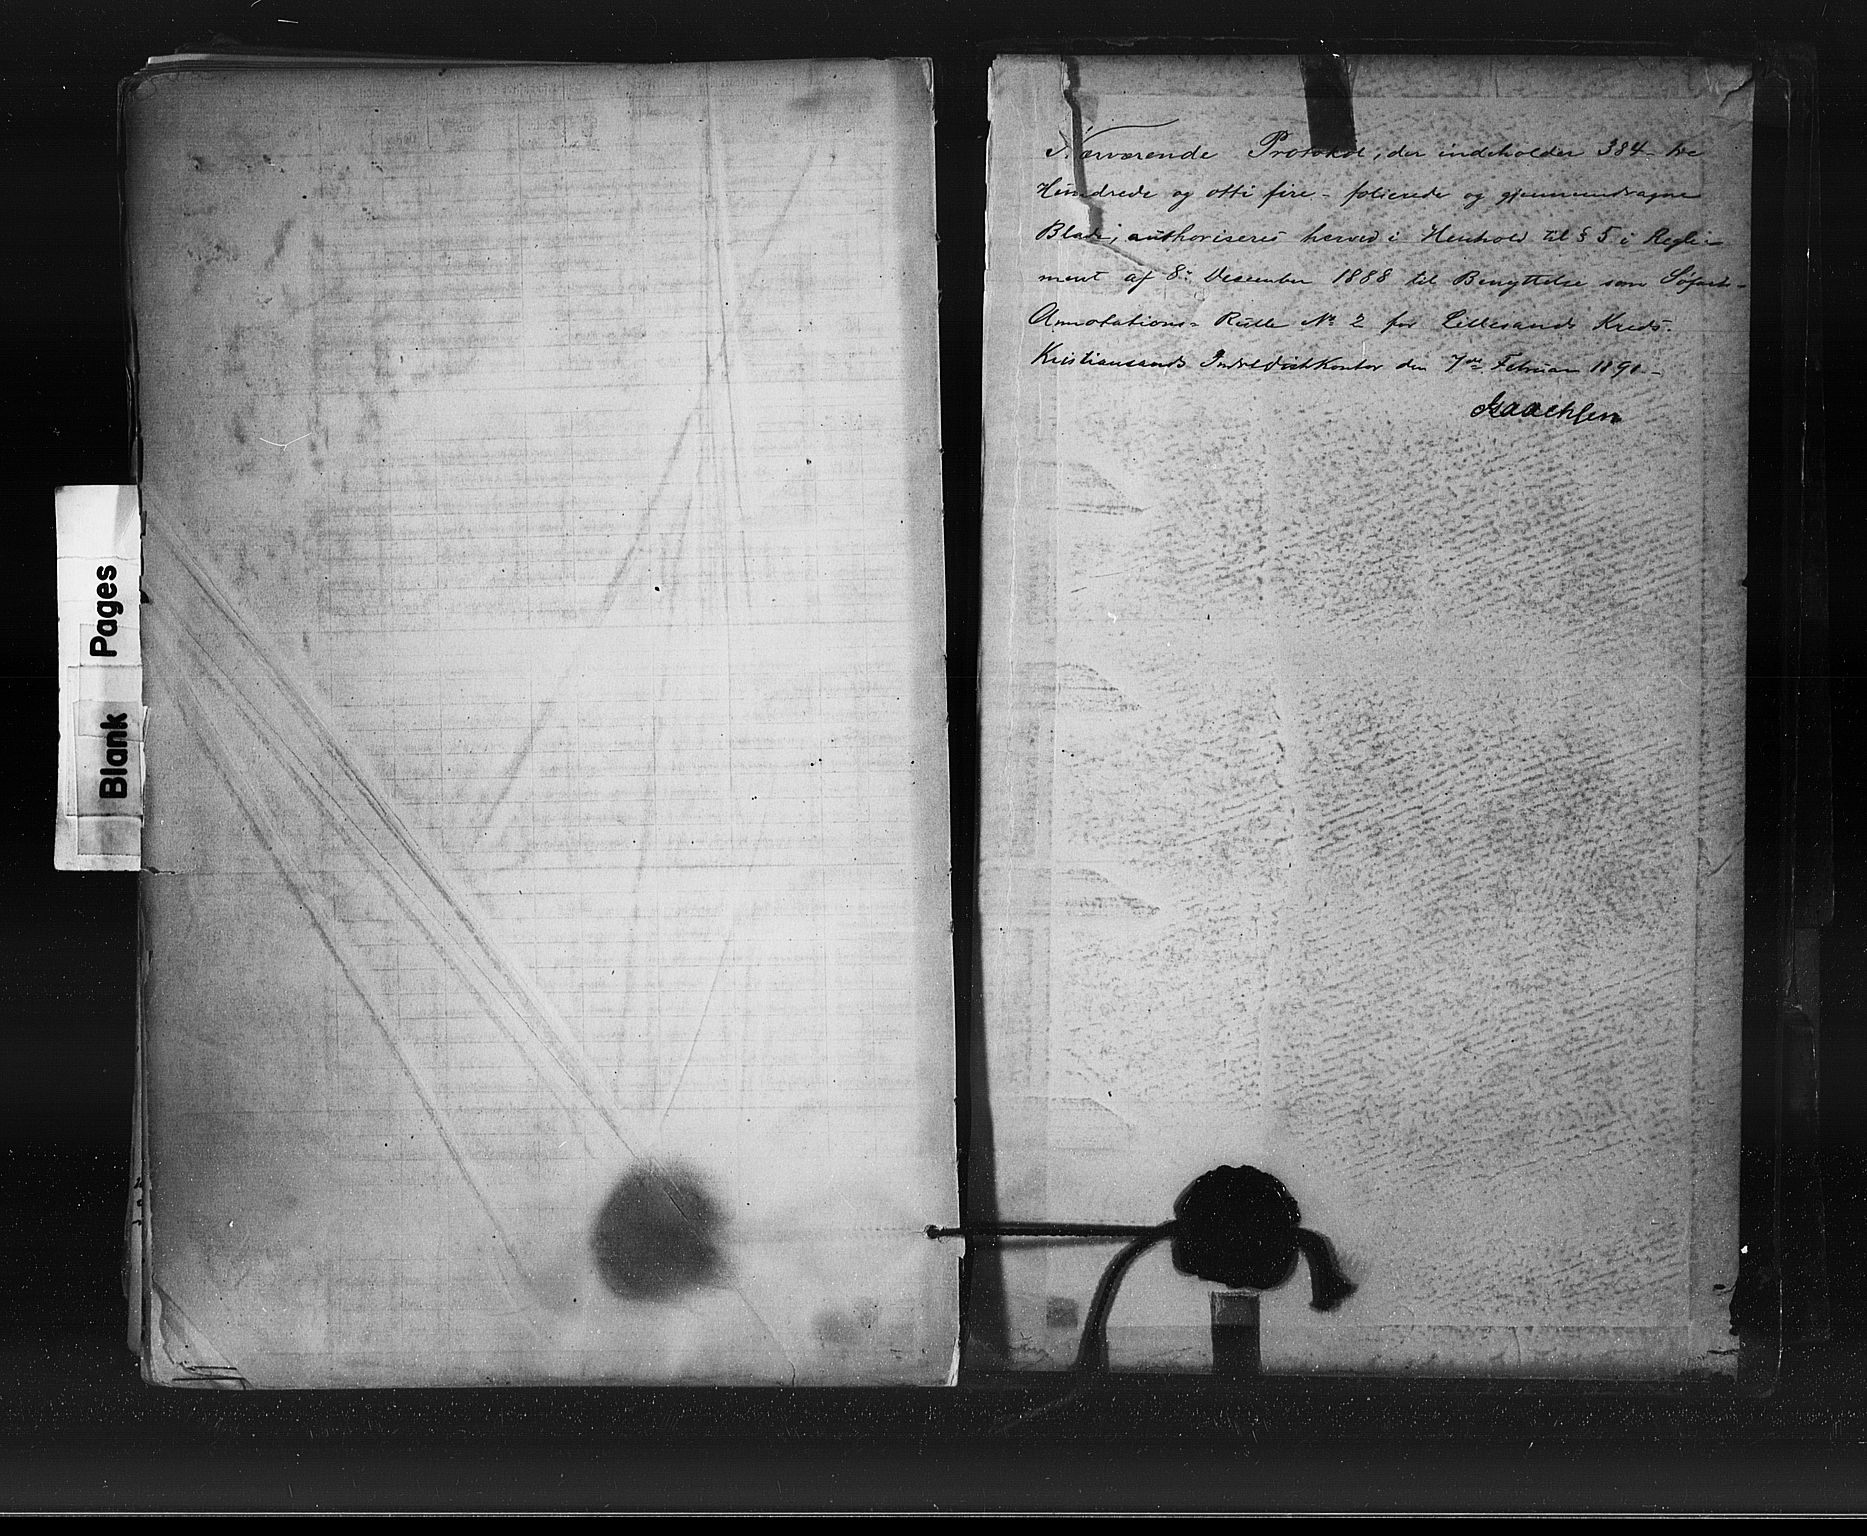 Nærværende Protokol, der indeholder 384 - tre
Hundrede og otti fire - folierede og gjennemdragne
Blade, authoriseres herved i Henhold til § 5 i Regle-
ment af 8. December 1888 til Benyttelse som Søfarts-
Annotations-Rulle No 2 for Lillesands Kreds.
Kristiansands Indrulleringskontor den 7de Februar 1891 -
Isaachsen
Blank Pages